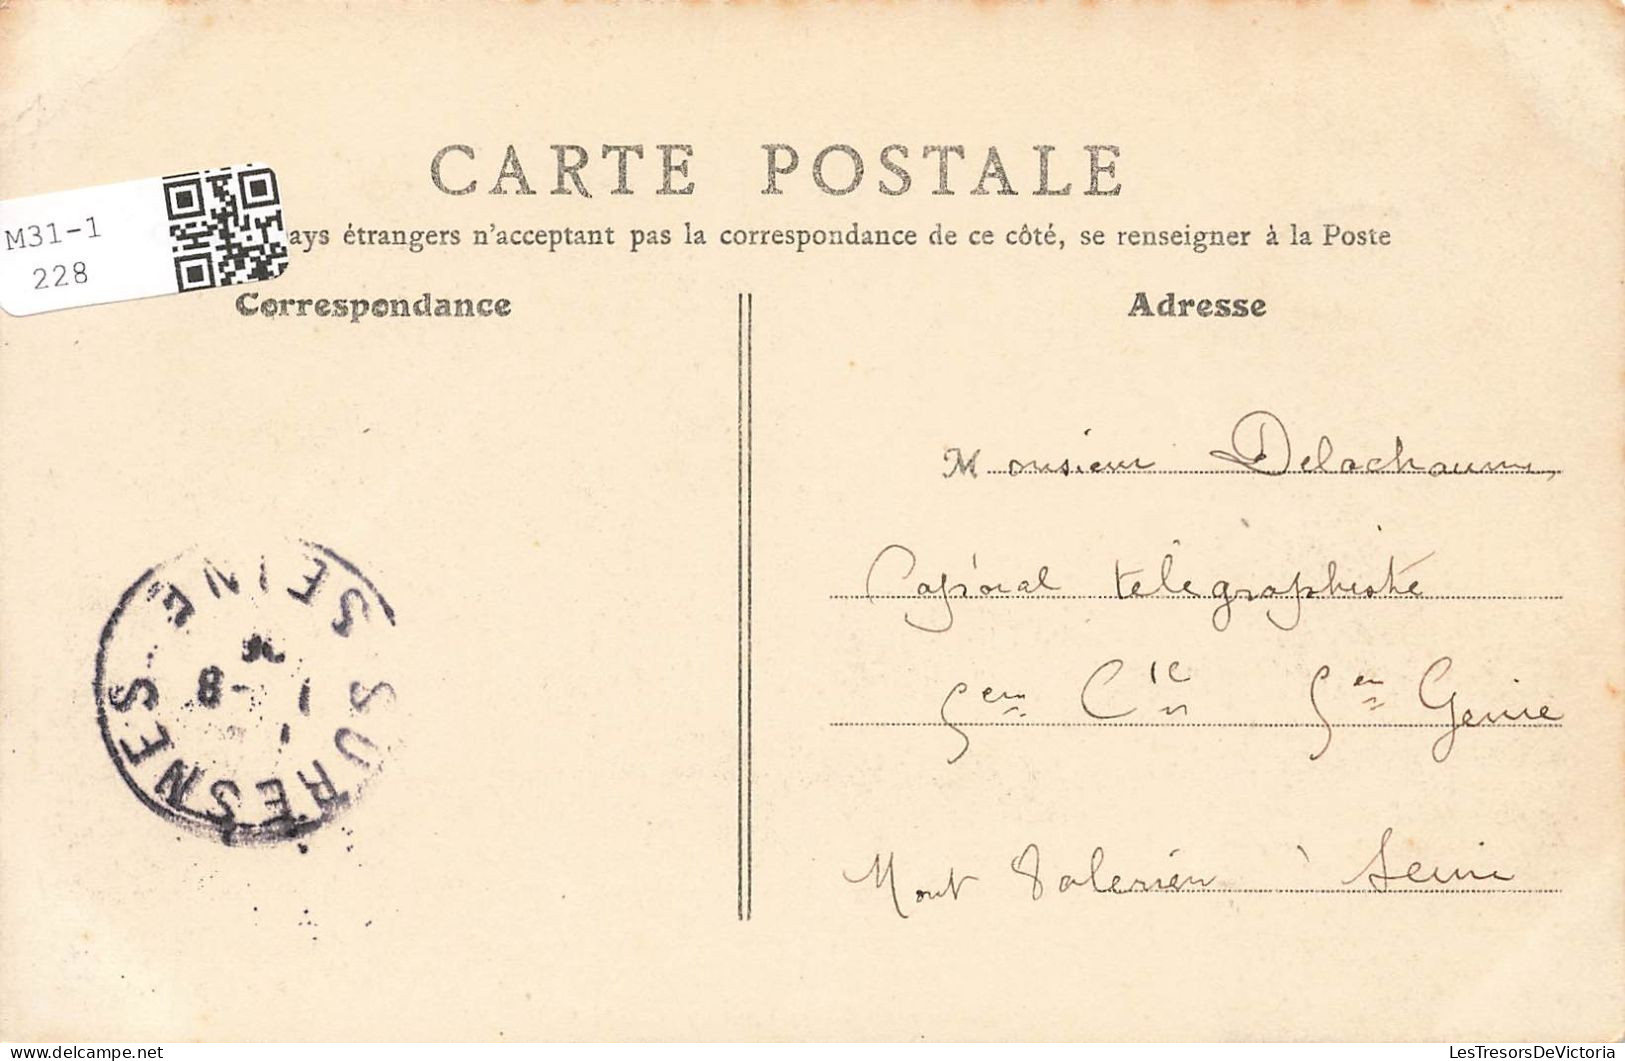 CARTE POSTALE
M31-1
228
ays étrangers n'acceptant pas la correspondance de ce côté, se renseigner à la Poste
Correspondance
Adresse
Monsieur Delachaume,
Caporal télégraphiste
5em Cie 5en Genie
Mont Valerien à Seine
SURESNES SEINE
8
LesTresorsDeVictoria